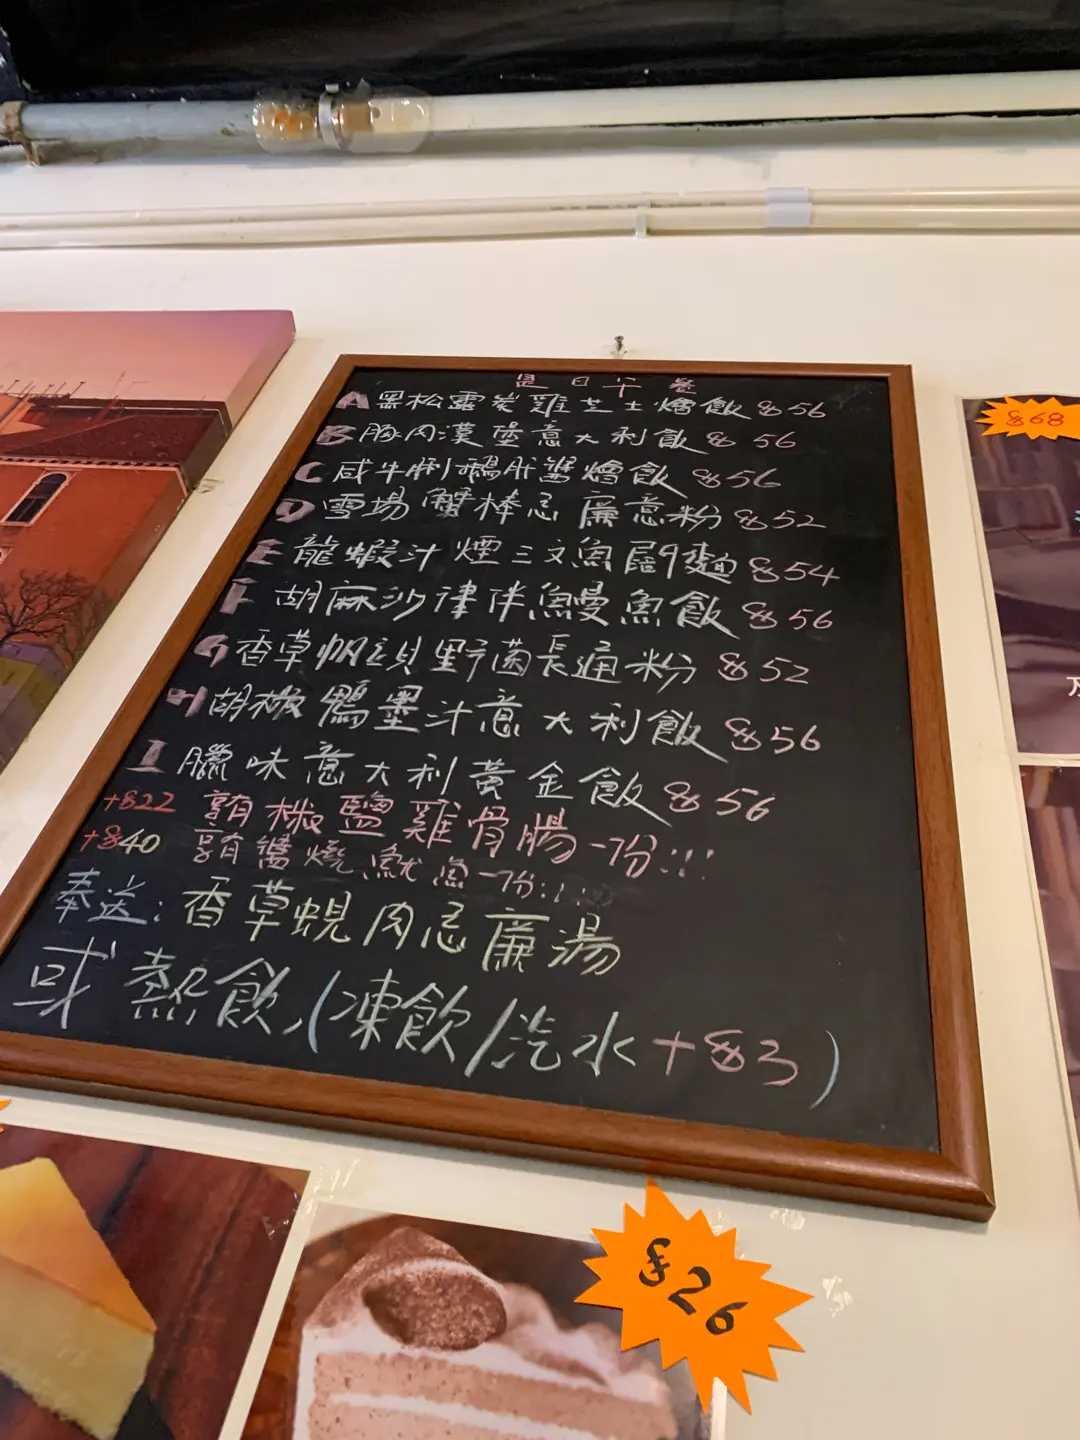 是日午餐
A 黑松露炭雞芝士燴飯 $56
B 胸肉漢堡意大利飯 $56
C 咸牛脷鵝肝醬燴飯 $56
D 雪場蟹棒忌廉意粉 $52
E 龍蝦汁煙三文魚闊麵 $54
F 胡麻沙律伴鰻魚飯 $56
G 香草帆立貝野菌長通粉 $52
H 胡椒鴨墨汁意大利飯 $56
I 臘味意大利黃金飯 $56
+$22 享有椒鹽雞骨腸一份!!!
+$40 享有醬燒魷魚一份!!!
奉送:香草蜆肉忌廉湯
或熱飲,(凍飲/汽水+$3)
$68
$26